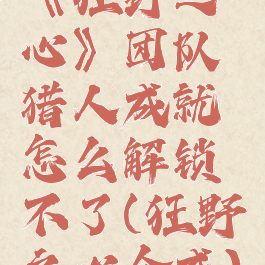 《狂野之
心》团队
猎人成就
怎么解锁
不了(狂野